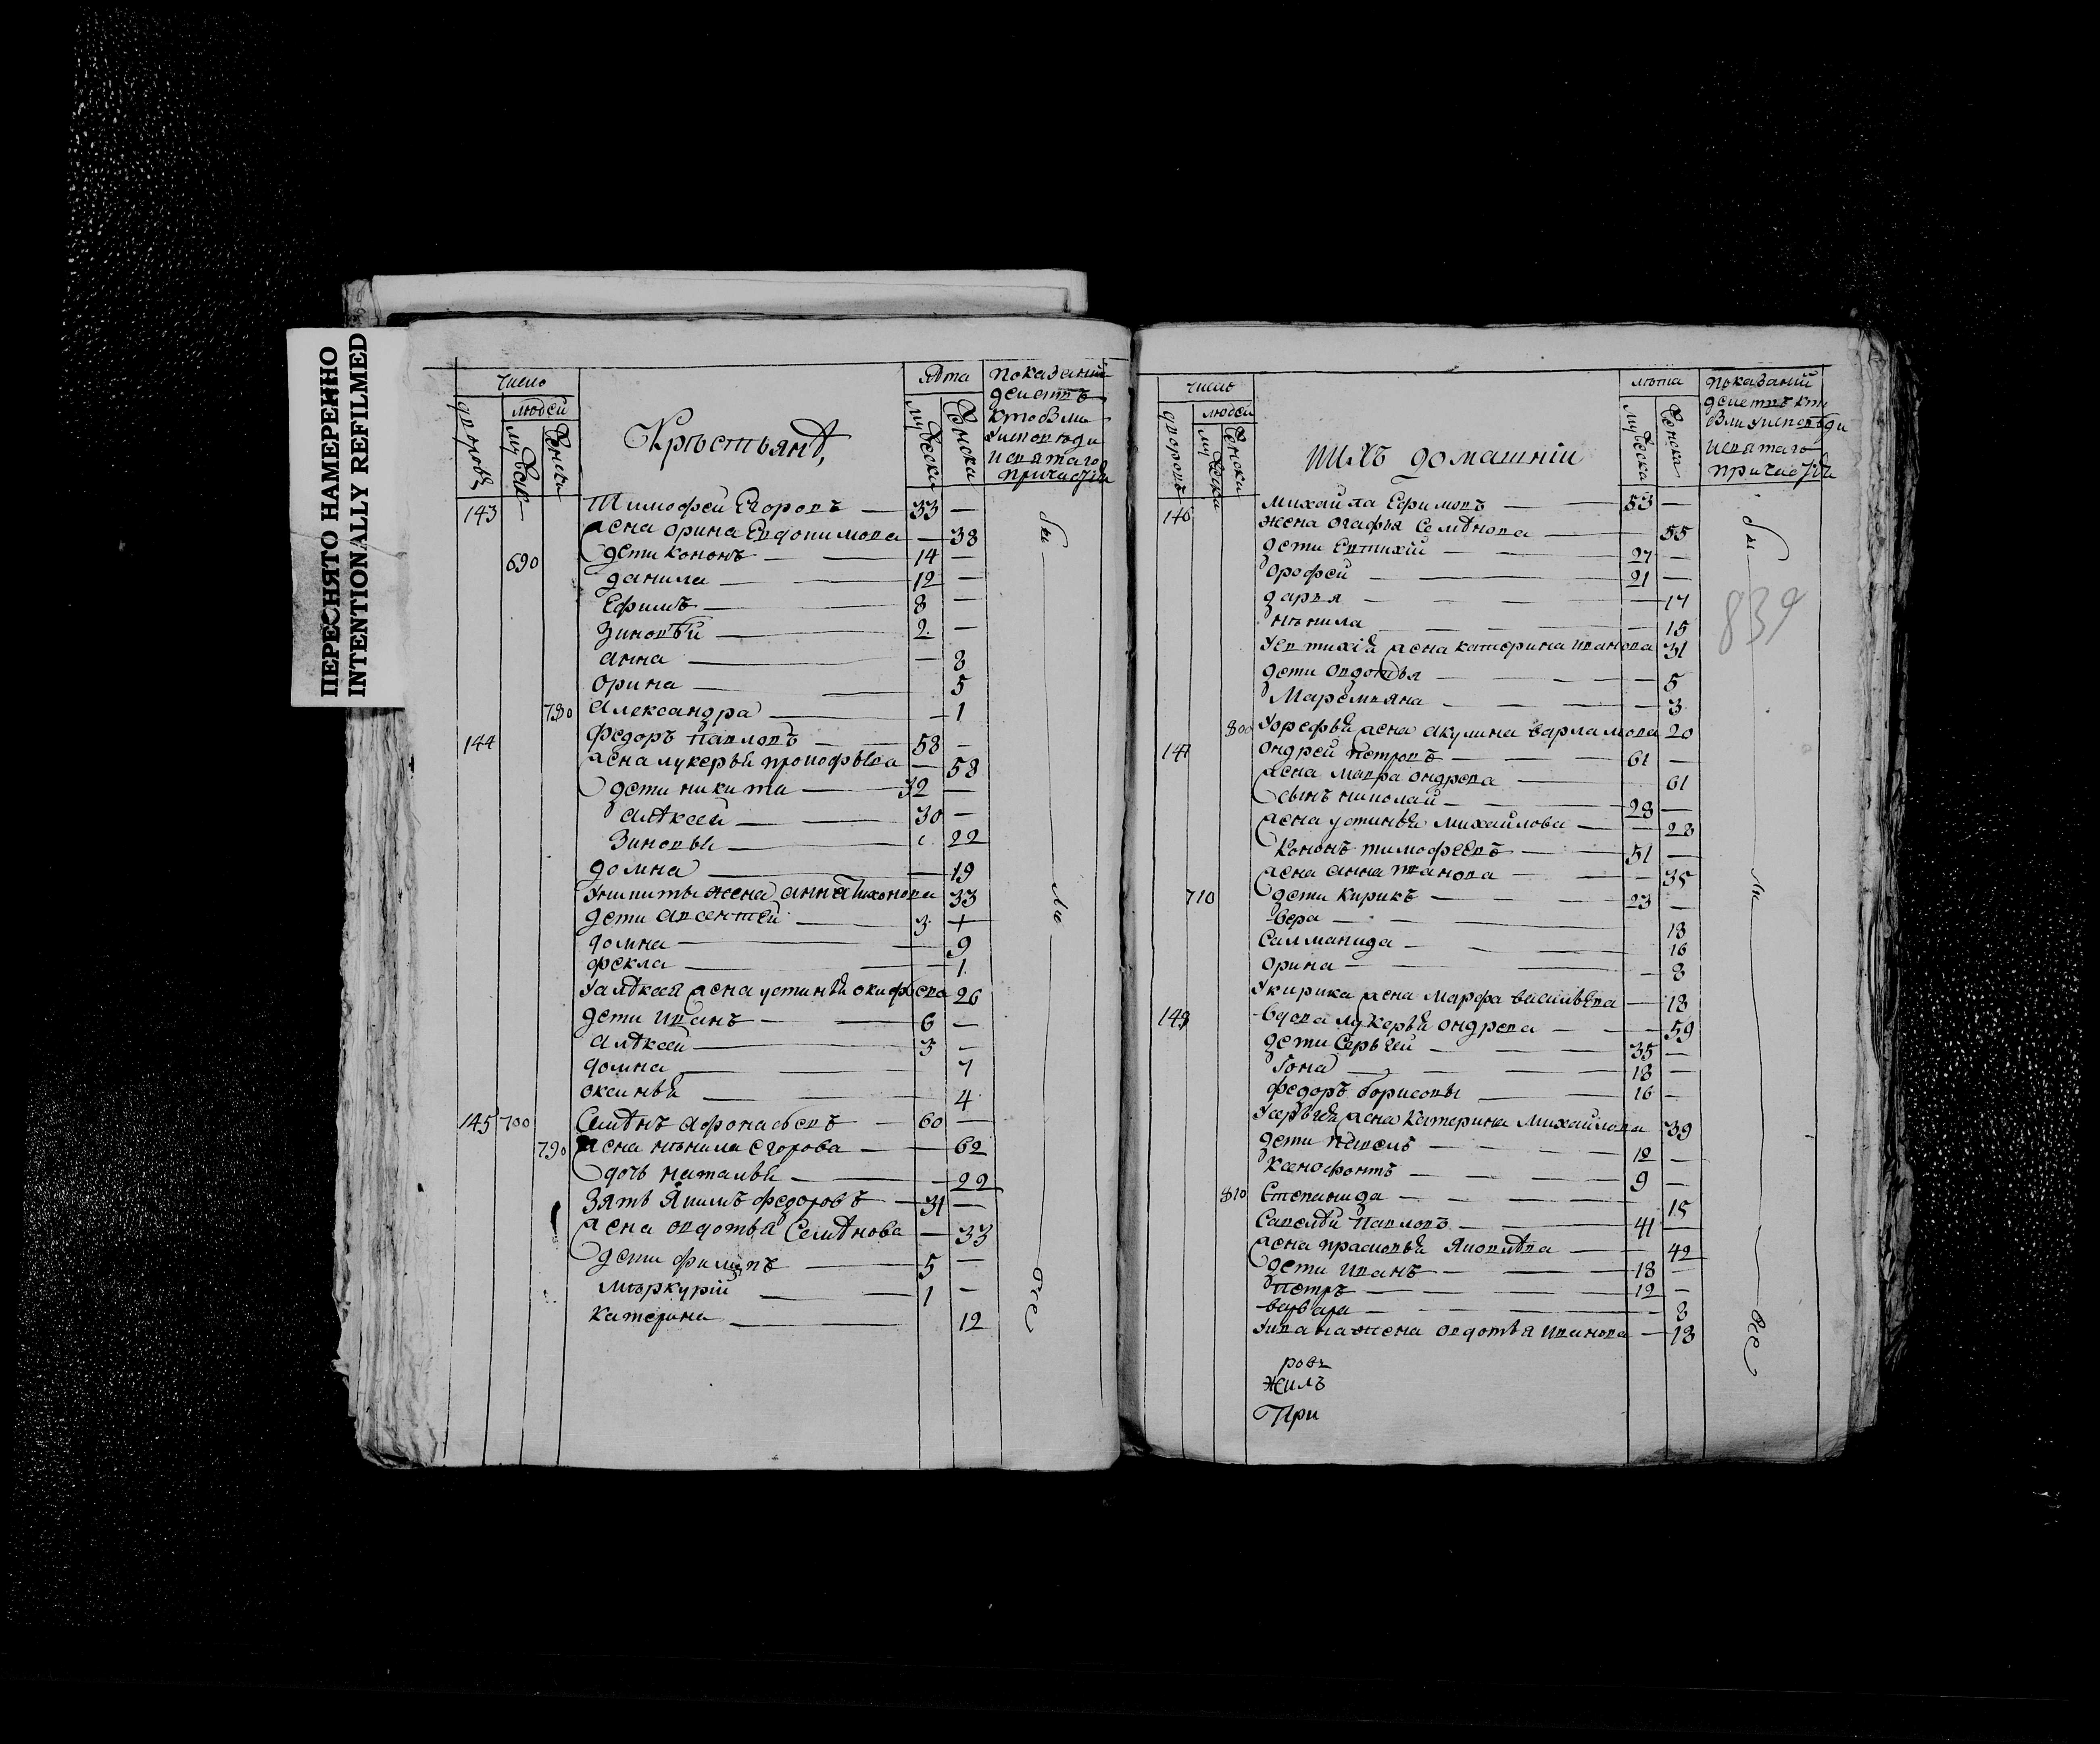 ПЕРЕСНЯТО НАМЕРЕННО
INTENTIONALLY REFILMED
Число
людей
Лѣта
показаний
Крестьянѣ,
143 Тимофей Егоровъ 33 —
жена орина Евдокимова — 38
690 дети кононъ 14 —
данила 12 —
Ефимъ 8 —
Зиновѣй 2 —
анна — 8
орина 5
780 александра — 1
144 Федоръ павловъ 58 —
жена лукерья прокофьева — 58
дети никита 32 —
алѣксей 30 —
Зиновья 22
домна — 19
Уникиты жена анна тихонова 33
дети арсентей 3
домна — 9
фекла — 1
Уалѣксея жена устинья 26
дети иванъ 6 —
алѣксей 3 —
домна 7
оксинья 4
145 700 Семѣнъ афонасьевъ 60 —
790 жена ненила егорова — 62
дочь наталья — 22
Зять Якимъ федоровъ 31 —
жена овдотья Семѣнова — 33
дети филипъ 5 —
меркурий 1 —
катерина 12
бы ли все
число
людей
лѣта
показаний
ИИХЪ домашнии
839
146 михайла Ефимовъ 53 —
жена огафья Семѣнова 55
дети Евтихий 27 —
орофей 21 —
дарья — 17
ненила — 15
Уевтихия жена катерина иванова 31
дети овдотья — 5
Маремьяна — 3
800 жена акулина варламова 20
147 ондрей петровъ 61 —
жена мавра ондрева 61
сынъ николай 28 —
жена устинья михайлова — 28
Кононъ тимофеевъ 51 —
жена анна — 35
710 дети кирикъ 23 —
вера 18
Саломанида 16
орина — 8
Укирика жена марфа васильева — 18
148 вдова лукерья ондрева — 59
дети Сергей 35 —
Иона 18 —
федоръ борисовы 16 —
Усергея жена Катерина Михайлова 39
дети павелъ 12 —
ксенофонтъ 9 —
810 Степанида 15
Савелей павловъ 41 —
жена прасковья Яковлева — 42
дети иванъ 18 —
петръ 12 —
варвара — 3
Уивана жена овдотья иванова — 18
бы ли все
ровъ
жилъ
При